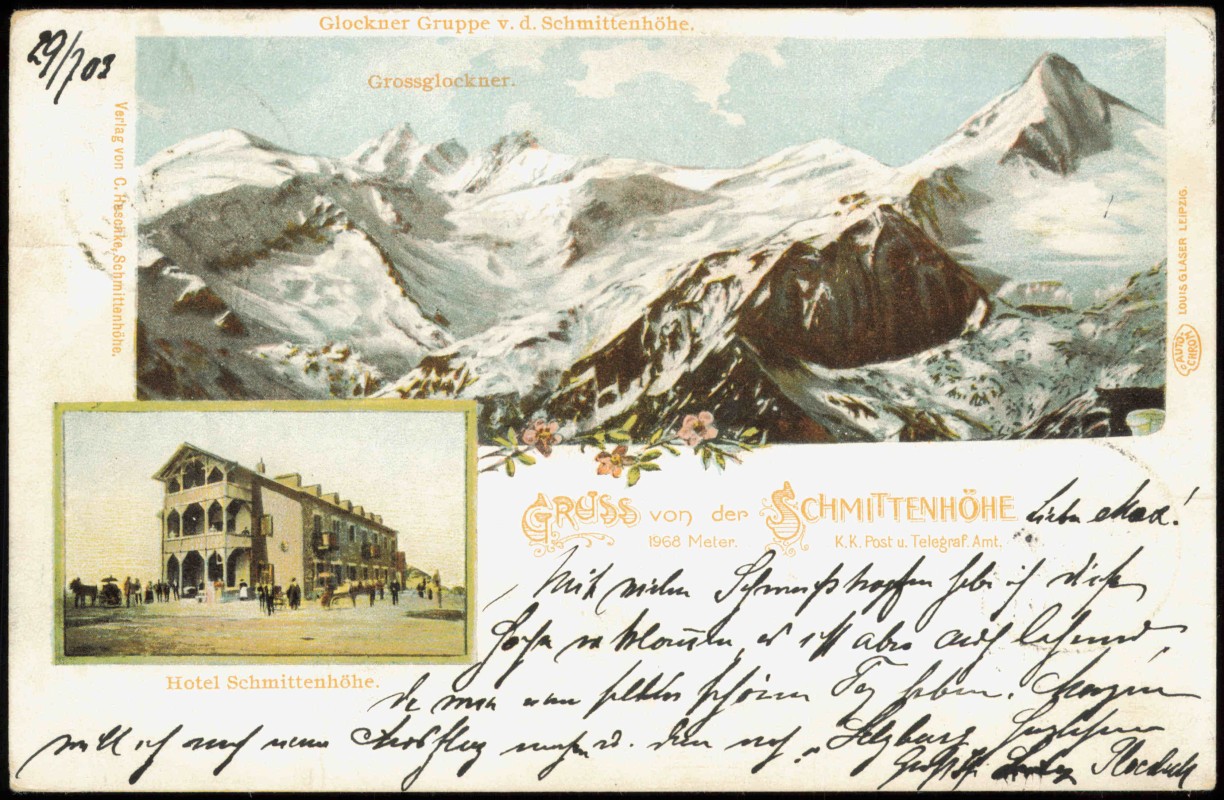 29/7 03
Glockner Gruppe v. d. Schmittenhöhe.
Grossglockner.
Verlag von C. Haschke, Schmittenhöhe.
LOUIS GLASER LEIPZIG.
AUTO
CHROM
GRUSS von der SCHMITTENHÖHE
1968 Meter.
K.K. Post u. Telegraf. Amt.
Hotel Schmittenhöhe.
Lieber Max!
Mit vielen Schweißtropfen habe ich diese
Höhe es ist aber auch lohnend,
da man einen selten schönen Tag haben. Morgen
will ich noch einen Ausflug machen u. dann nach Salzburg